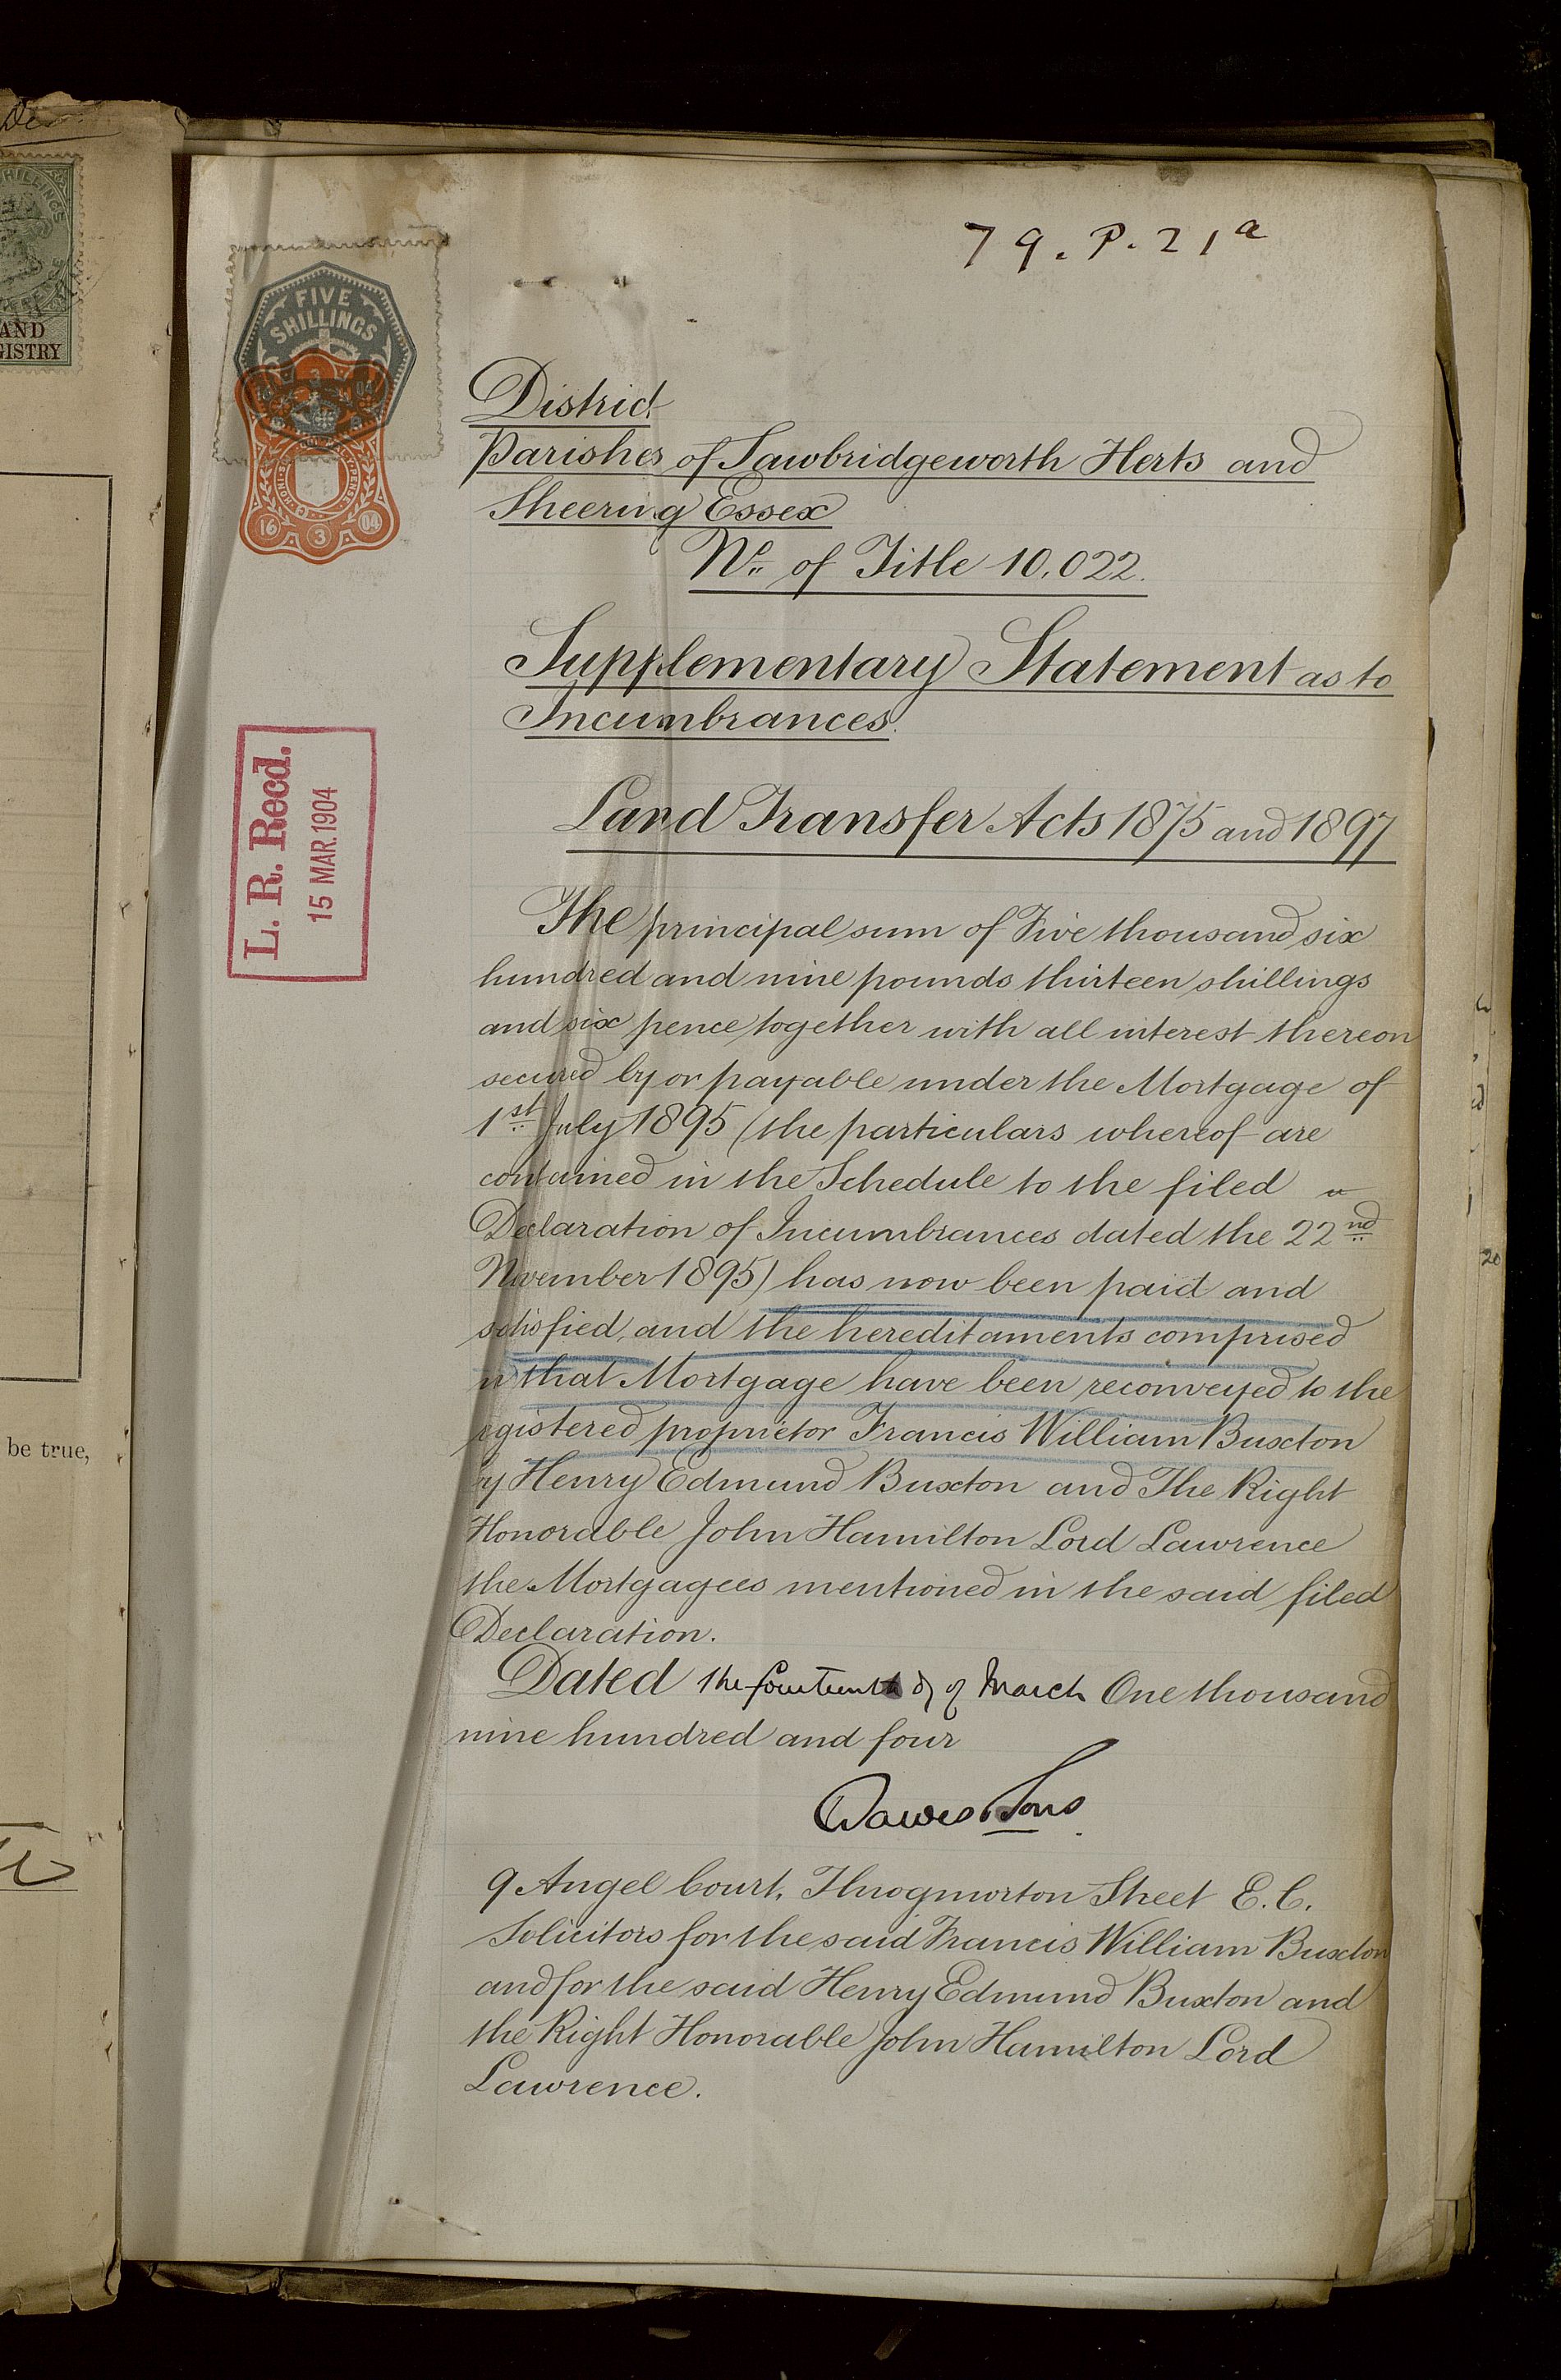 79. P. 21a
FIVE
SHILLINGS
16 3 04
L. R. Recd.
15 MAR. 1904
AND
GISTRY
be true,
District
Parishes of Sawbridgeworth Herts and
Sheering Essex
No. of Title 10,022.
Supplementary Statement as to
Incumbrances.
Land Transfer Acts 1875 and 1897
The principal sum of Five thousand six
hundred and nine pounds thirteen shillings
and six pence together with all interest thereon
secured by or payable under the Mortgage of
1st July 1895 (the particulars whereof are
contained in the Schedule to the filed
Declaration of Incumbrances dated the 22nd
November 1895) has now been paid and
satisfied, and the hereditaments comprised
in that Mortgage have been reconveyed to the
egistered proprietor Francis William Buxton
y Henry Edmund Buxton and The Right
Honorable John Hamilton Lord Lawrence
the Mortgagees mentioned in the said filed
Declaration.
Dated the fourteenth dy of March One thousand
nine hundred and four
Dawes & Sons
9 Angel Court, Throgmorton Street E.C.
Solicitors for the said Francis William Buxton
and for the said Henry Edmund Buxton and
the Right Honorable John Hamilton Lord
Lawrence.